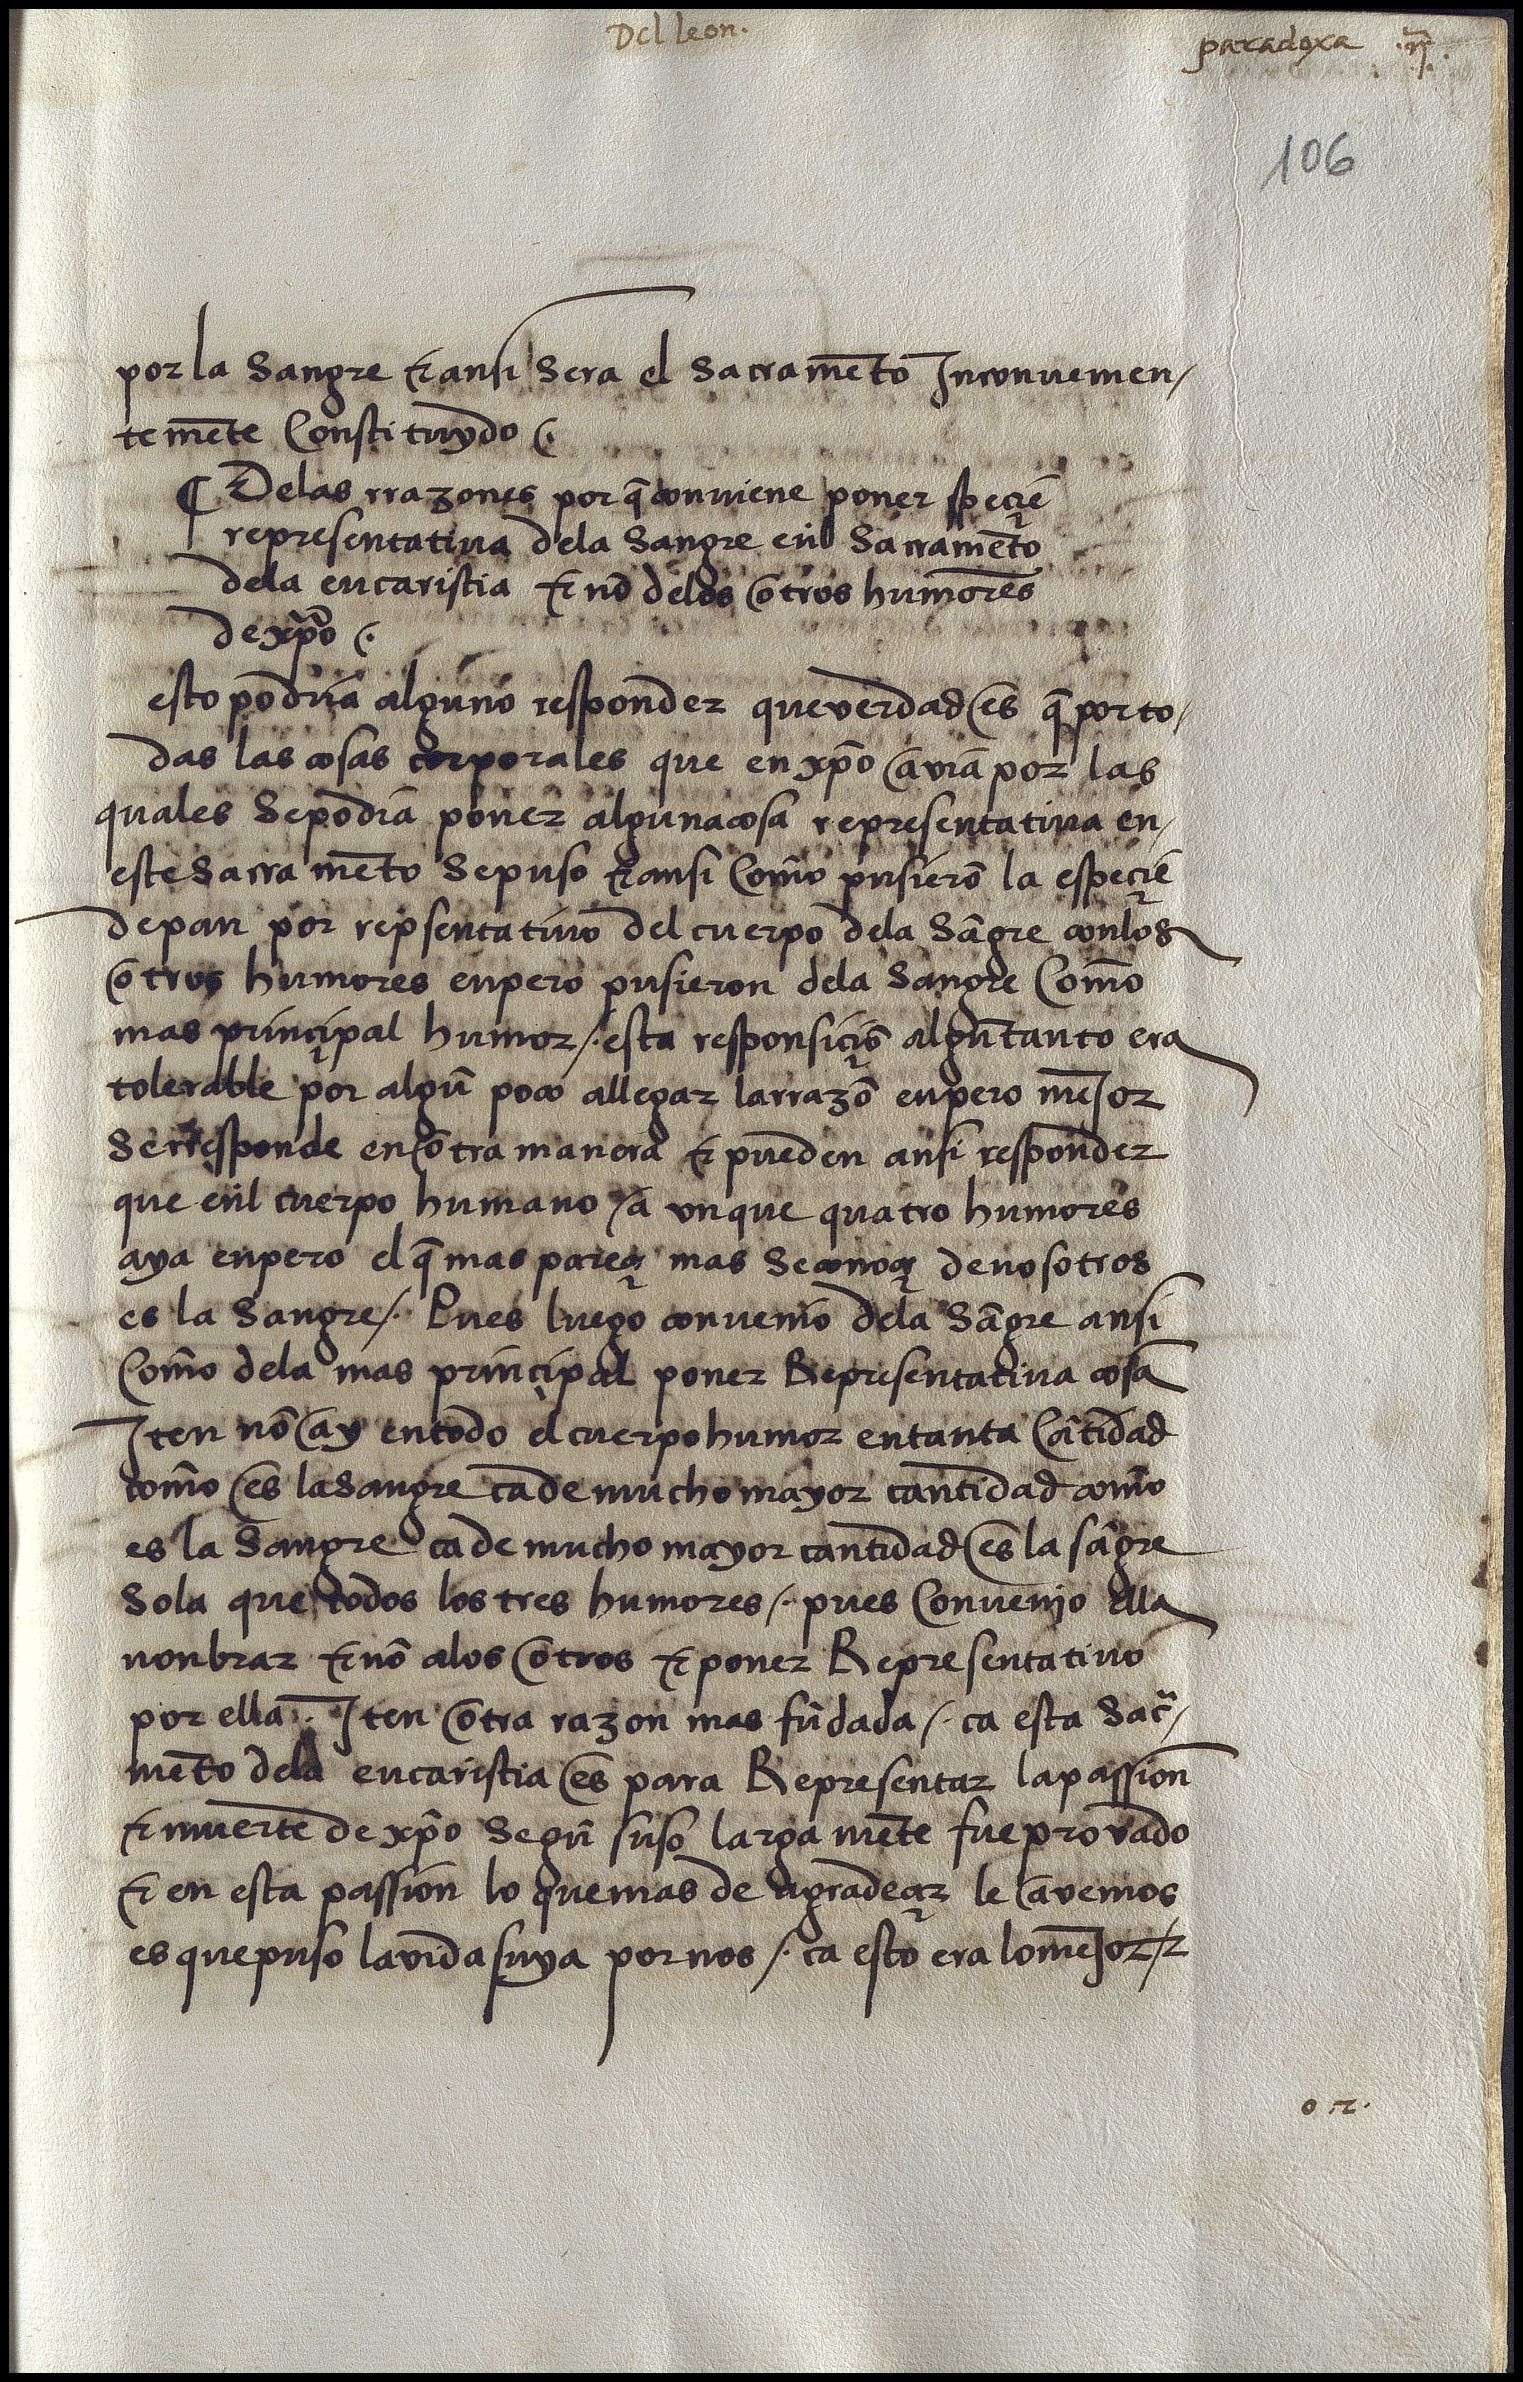 Del leon.
paradoxa .ij.
106
por la Sangre & ansi Sera el Sacramẽto Inconuenien/
te mẽte Constituydo (.
¶ Delas rrazones por q̃ conuiene poner speçiẽ
representatiua dela Sangre enl Sacramẽto
dela eucaristia & nõ delos otros humores
de xp̃o (.
esto podria alguno responder que verdad es q̃ por to/
das las cosas corporales que en xp̃o auiã por las
quales Se podiã poner alguna cosa representatiua en/
este Sacra mẽto Se puso & ansi Com̃o pusierõ la espeçiẽ
de pan por repsentatiuo del cuerpo dela Sãgre con los
otros humores enpero pusieron dela Sangre Com̃o
mas prinçipal humor /. esta responsiçiõ algũ tanto era
tolerable por algũ poco allegar la rrazõ enpero meJor
Se rresponde en otra manera & pueden ansi responder
que enl cuerpo humano / a vn que quatro humores
aya enpero el q̃ mas pareçe mas Se conoçe de nosotros
es la Sangre /. Pues luego conuenio dela Sãgre ansi
Com̃o dela mas prinçipal poner Representatiua cosa
Iten nõ ay en todo el cuerpo humor en tanta Cãtidad
com̃o es la Sangre ca de mucho mayor cantidad com̃o
es la Sangre ca de mucho mayor cantidad es la sãgre
Sola que todos los tres humores /. pues Conuenjo ella
nonbrar & nõ alos otros & poner Representatiuo
por ella . Iten otra razon mas fũdada /. ca esta Sac̃/
mẽto dela eucaristia es para Representar la passion
& muerte de xp̃o Segũ suso larga mẽte fue provado
& en esta passion lo que mas de agradeçer le avemos
es que puso la vida suya por nos /. ca esto era lo meJor &
o r.